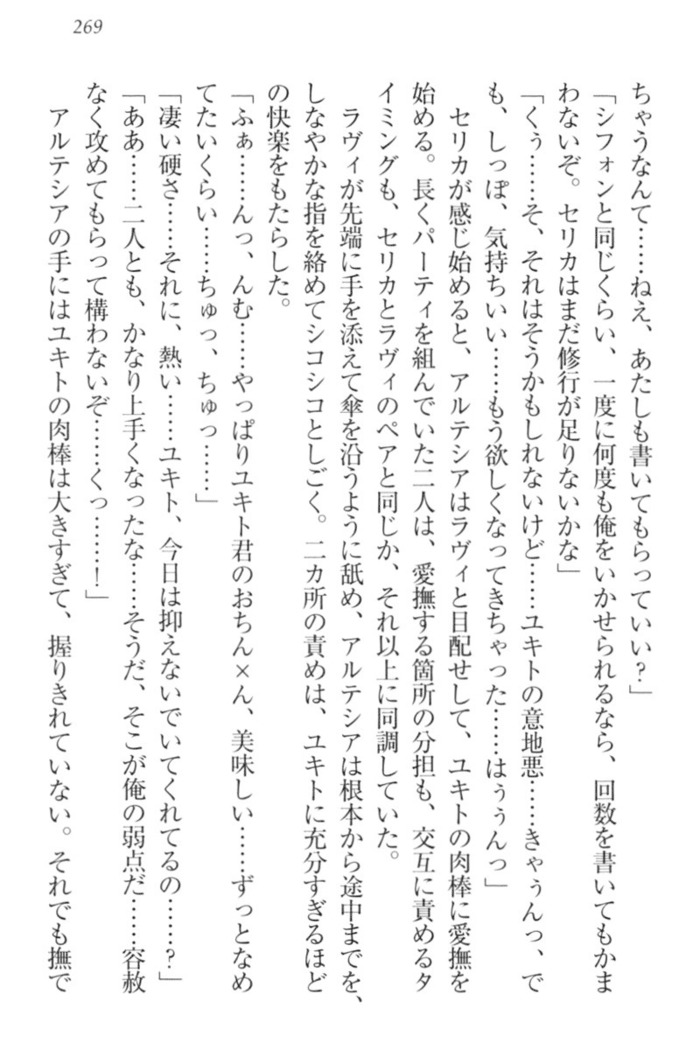 269
ちゃうなんて……ねえ、あたしも書いてもらっていい？」
「シフォンと同じくらい、一度に何度も俺をいかせられるなら、回数を書いてもかま
わないぞ。セリカはまだ修行が足りないかな」
「くぅ……そ、それはそうかもしれないけど……ユキトの意地悪……きゃぅんっ、で
も、しっぽ、気持ちいい……もう欲しくなってきちゃった……はぅぅんっ」
セリカが感じ始めると、アルテシアはラヴィと目配せして、ユキトの肉棒に愛撫を
始める。長くパーティを組んでいた二人は、愛撫する箇所の分担も、交互に責めるタ
イミングも、セリカとラヴィのペアと同じか、それ以上に同調していた。
ラヴィが先端に手を添えて傘を沿うように舐め、アルテシアは根本から途中までを、
しなやかな指を絡めてシコシコとしごく。二カ所の責めは、ユキトに充分すぎるほど
の快楽をもたらした。
「ふぁ……んっ、んむ……やっぱりユキト君のおちん×ん、美味しい……ずっとなめ
てたいくらい……ちゅっ、ちゅっ……」
「凄い硬さ……それに、熱い……ユキト、今日は抑えないでいてくれてるの……？」
「ああ……二人とも、かなり上手くなったな……そうだ、そこが俺の弱点だ……容赦
なく攻めてもらって構わないぞ……くっ……！」
アルテシアの手にはユキトの肉棒は大きすぎて、握りきれていない。それでも撫で